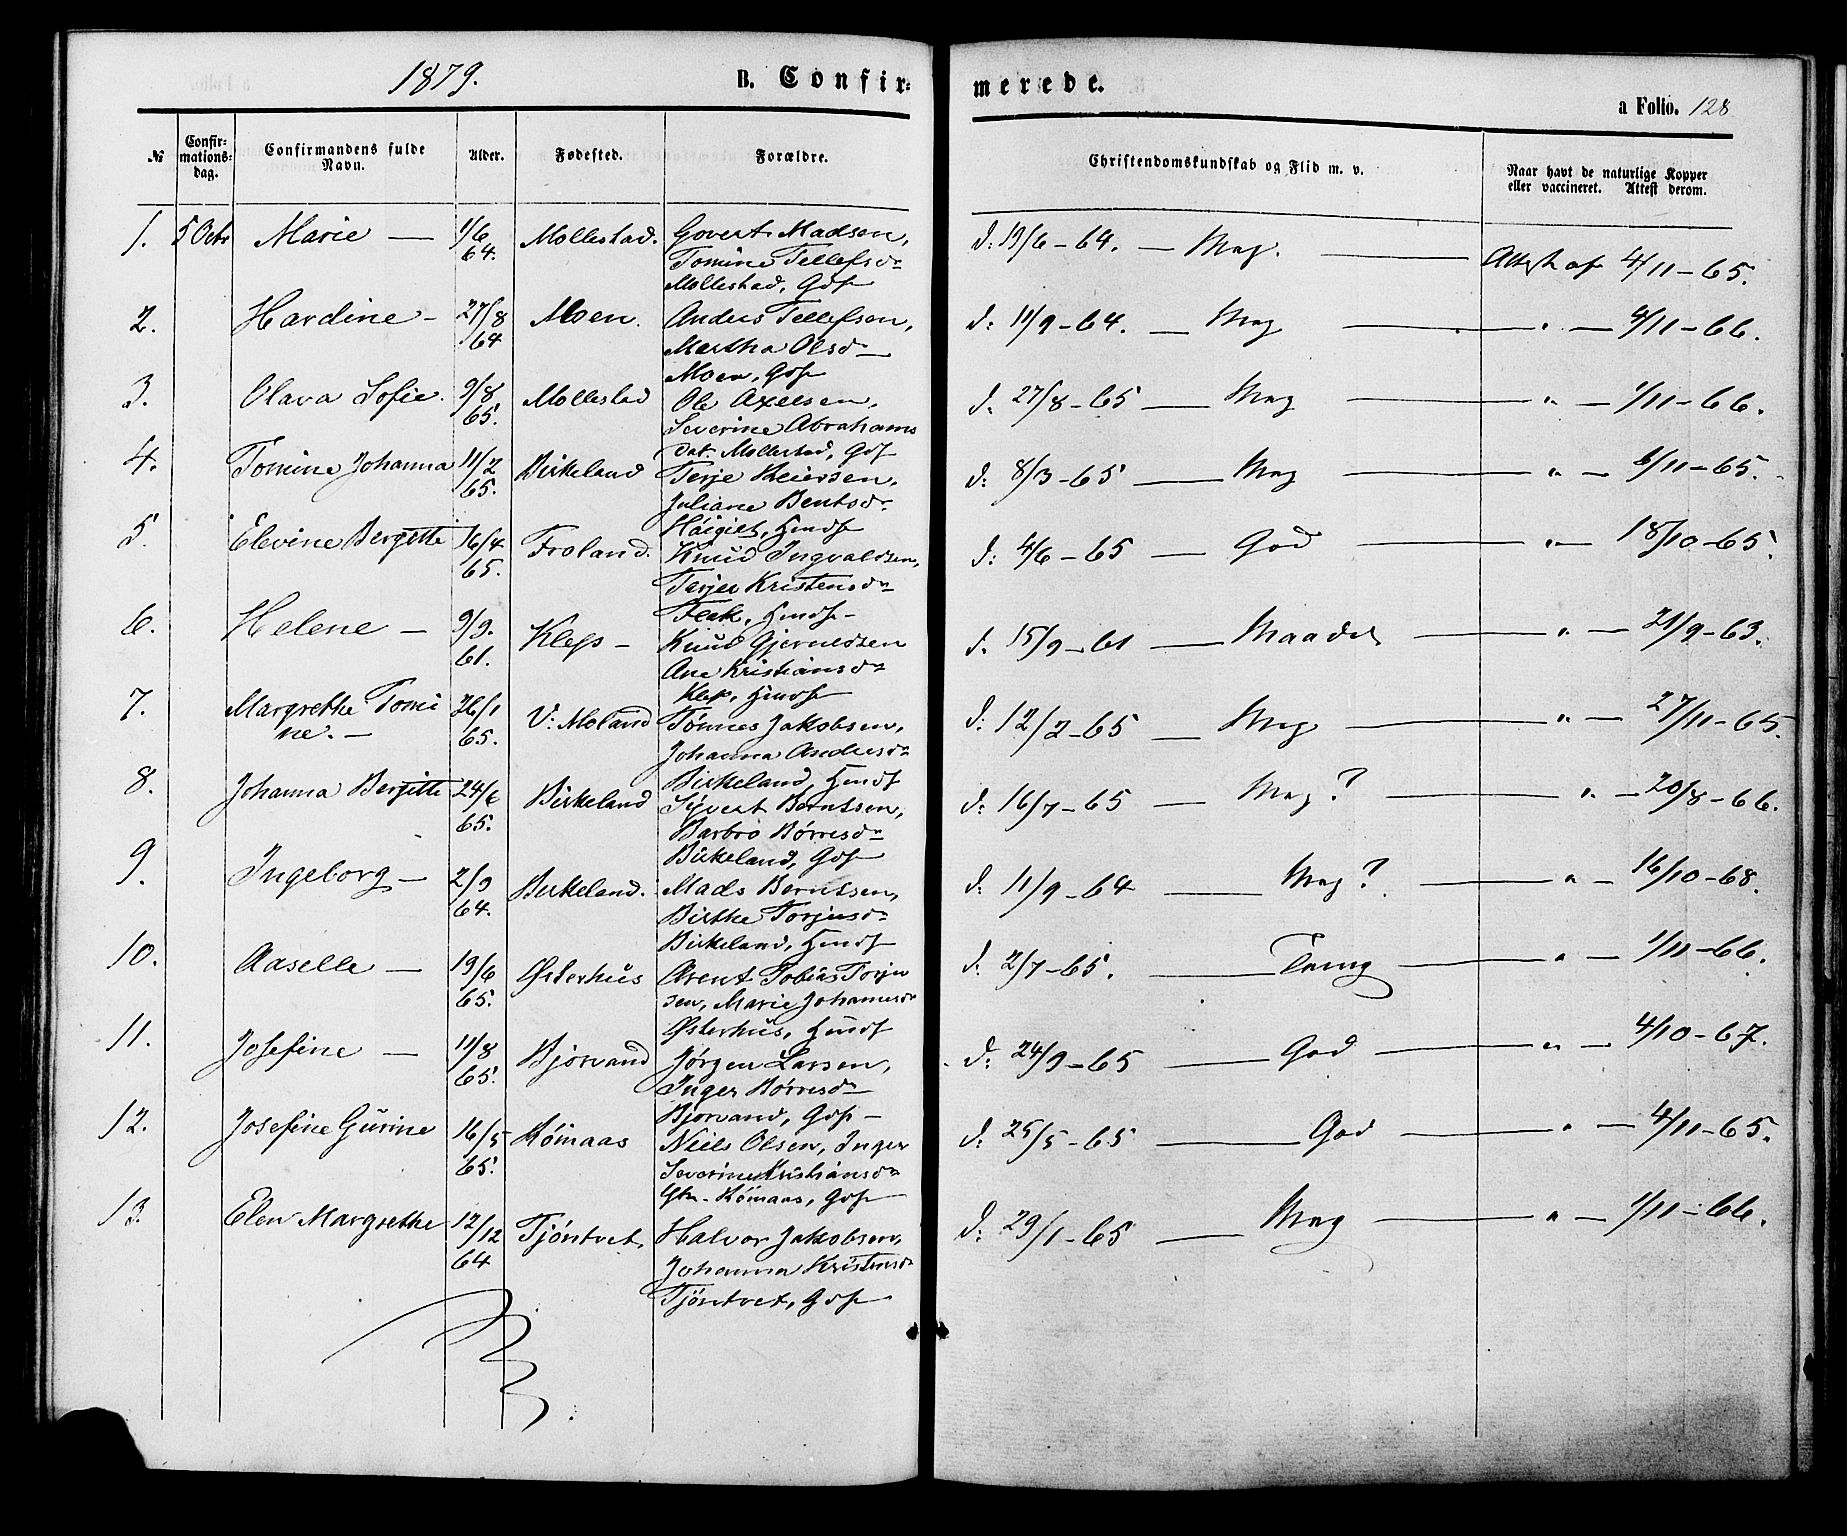 1879. B. Confir- merede.
a Folio. 128
№ Confir-mations-dag. Confirmandens fulde Navn. Alder. Fødested. Forældre. Christendomskundskab og Flid m. v. Naar havt de naturlige Kopper eller vaccineret. Attest derom.
1. 5 Octr Marie — 1/6 64. Mollestad. Govert Madsen, d: 19/6-64. — Mag. — Attest af 4/11-65.
Tomine Tellefsd
Mollestad, Gdf
2. Hardine - 27/8 64 Moen. Anders Tellefsen, d: 11/9-64. — Mag — " — 4/11-66.
Martha Olsd —
Moen, Gdf
3. Olava Sofie. 9/8 65. Mollestad Ole Axelsen, d: 27/8-65 — Mag — " — 1/11-66.
Severine Abrahams
dat. Mollestad, Gdf
4. Tomine Johanna 11/2 65. Birkeland Terje Reiersen, d: 8/3-65 — Mag — " — 6/11-65.
Juliane Bentsd
Hmdf
5. Elevine Bergitte 16/4 65. Froland. Knud Ingvaldsen, d: 4/6-65 — God — " — 18/10-65.
Terjer Kristensd
Flak, Hmdf -
6. Helene — 9/9. 61. Kleps — Knud d: 15/9-61 — Maadel — " — 21/9-63.
Ane Kristiansd
Klep, Hmdf
7. Margrethe Tomi 26/1 65. V: Moland Tønnes Jakobsen, d: 12/2-65 — Mag — " — 27/11-65.
ne. —
Johanna Andersd
Birkeland, Hmdf
8. Johanna Bergitte 24/6 65. Birkeland Syvert Berntsen, d: 16/7-65 — Mag? — " — 20/8-66.
Barbro Børresd
Birkeland, Gdf
9. Ingeborg — 2/9 64. Birkeland. Mads Berntsen, d: 11/9-64 — Mag? — " — 16/10-68.
Birthe Torjusd
Birkeland, Hmdf
10. Aaselle — 19/6 65. Østerhus Arent Tobias Torju d: 2/7-65. — Temg — " — 1/11-66.
sen, Marie Johannesd
Østerhus, Hmdf
11. Josefine — 11/8 65. Bjorvand Jørgen Larsen, d: 24/9-65 — God — " — 4/10-67.
Inger Børresd
Bjorvand, Gdf —
12. Josefine Gurine 16/5 65. Rømaas Niels Olsen, Inger d: 25/5-65 — God — " — 4/11-65.
Severine Kristiansd
Rømaas, Gdf
13. Elen Margrethe 12/12 64 Tjøntvet. Halvor Jakobsen, d: 29/1-65 — Mag — " — 1/11-66.
Johanna Kristensd
Tjøntvet, Gdf